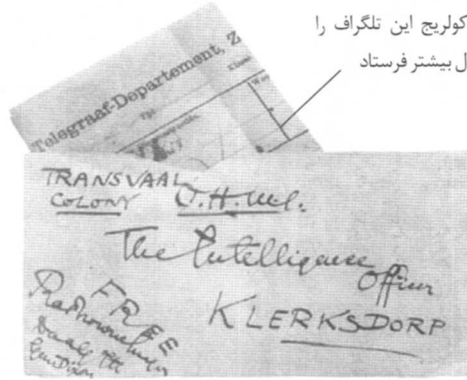 کولریج این تلگراف را
ل بیشتر فرستاد
Telegraaf-Departement, Z
TRANSVAAL
COLONY
O.H.M.S.
The Intelligence
Officer
KLERKSDORP
FREE